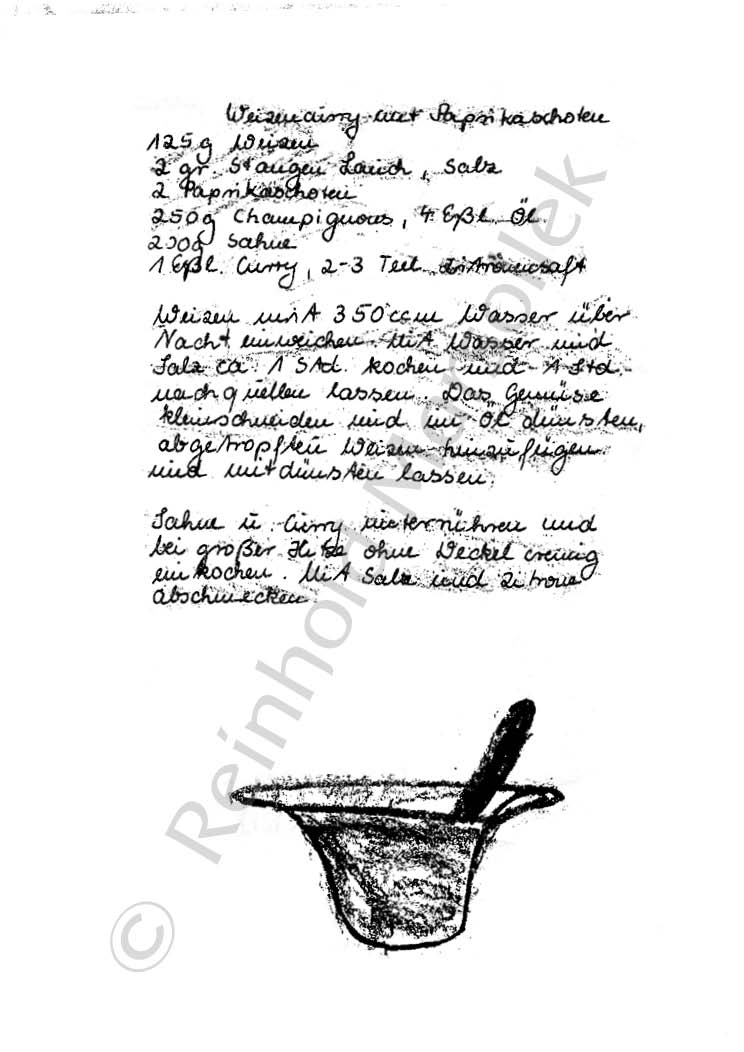 Weizencurry mit Paprikaschoten
125g Weizen
2 gr. Stangen Lauch, Salz
2 Paprikaschoten
250g Champignons, 4 Eßl. Öl
200g Sahne
1 Eßl. Curry, 2-3 Teel. Zitronensaft
Weizen mit 350ccm Wasser über
Nacht einweichen. Mit Wasser und
Salz ca. 1 Std. kochen und 1 Std.
nachquellen lassen. Das Gemüse
kleinschneiden und im Öl dünsten,
abgetropften Weizen hinzufügen
und mitdünsten lassen.
Sahne u. Curry unterrühren und
bei großer Hitze ohne Deckel cremig
einkochen. Mit Salz und Zitrone
abschmecken.
© Reinhold Mermollek